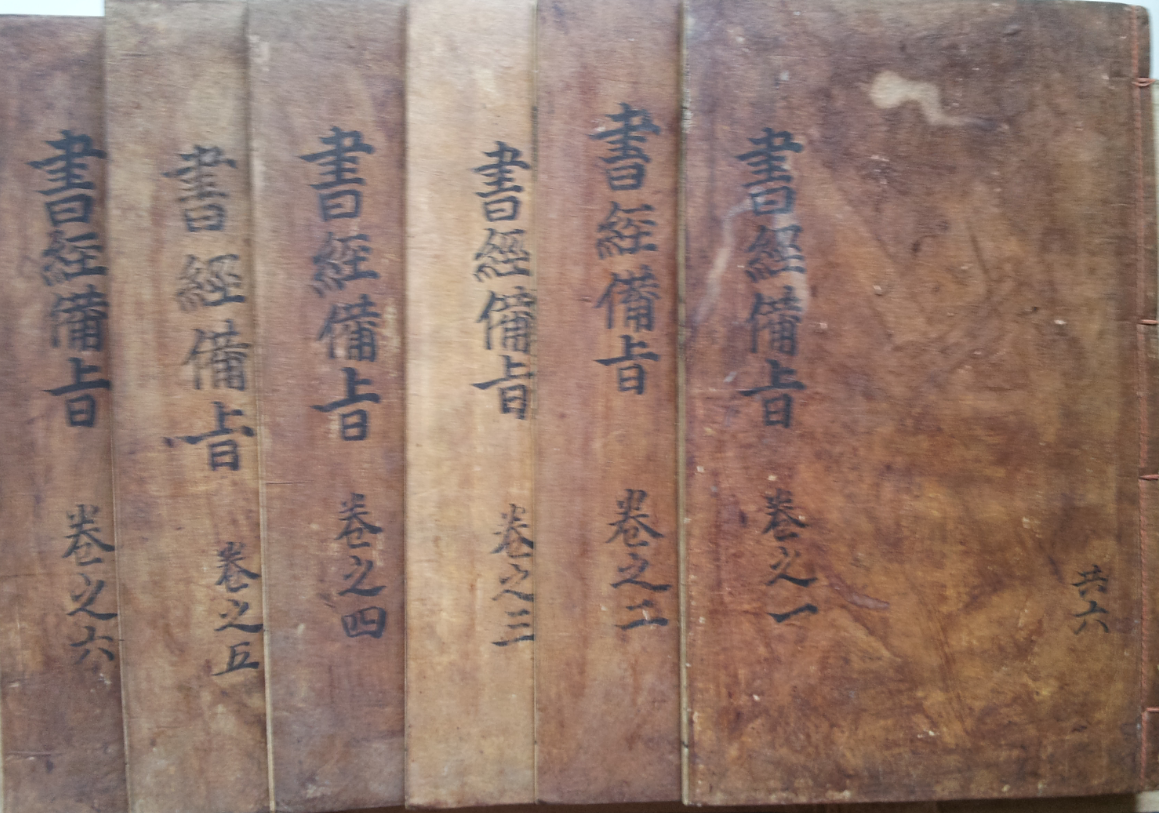 共六
書經備旨 卷之一
書經備旨 卷之二
書經備旨 卷之三
書經備旨 卷之四
書經備旨 卷之五
書經備旨 卷之六